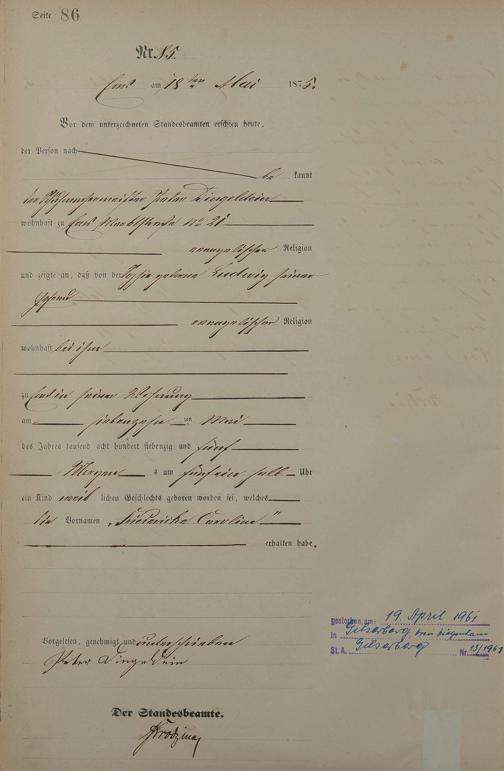 Seite 86
Nr. 85.
Ems am 18ten Mai 1875.
Vor dem unterzeichneten Standesbeamten erschien heute,
der Person nach
be kannt
der Schuhmachermeister Peter Dingeldein
wohnhaft zu Ems Marktstraße No 21
evangelischer Religion
und zeigte an, daß von der Sophie geborene Ludwig seiner
Ehefrau
evangelischer Religion
wohnhaft bei ihm
zu Ems in seiner Wohnung
am siebenzehn ten Mai
des Jahres tausend acht hundert siebenzig und fünf
Morgen s um fünf ein halb Uhr
ein Kind weib lichen Geschlechts geboren worden sei, welches
die Vornamen „Friederike Caroline"
erhalten habe.
Vorgelesen, genehmigt und unterschrieben
Peter Dingeldein
Der Standesbeamte.
gestorben am: 19. April 1961
in Gilserberg, Kreis Ziegenhain
St.A. Gilserberg Nr. 13/1961